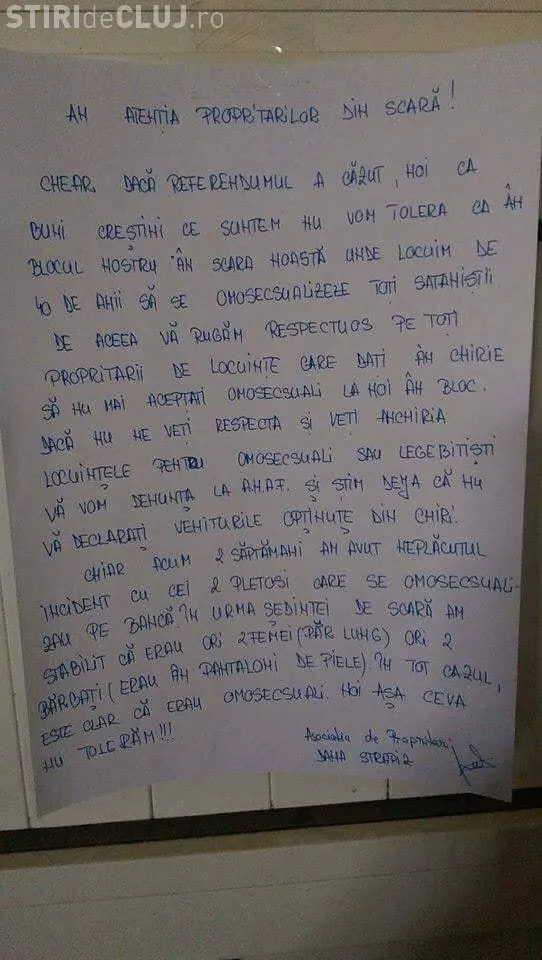 STIRIdeCLUJ.ro
AH ATEHȚIA PROPRITARILOR DIH SCARĂ!
CHEAR DACĂ REFEREHDUMUL A CĂZUT, HOI CA
BUHI CREȘTIHI CE SUHTEM HU VOM TOLERA CA ÂH
BLOCUL HOSTRU ÂH SCARA HOASTĂ UHDE LOCUIM DE
40 DE AHII SĂ SE OMOSECSUALIZEZE TOȚI SATAHIȘTII
DE ACEEA VĂ RUGĂM RESPECTUOS PE TOȚI
PROPRITARII DE LOCUIHTE CARE DATI ÂH CHIRIE
SĂ HU MAI ACEPTATI OMOSECSUALI LA HOI ÂH BLOC.
DACĂ HU HE VEȚI RESPECTA SI VETI AHCHIRIA
LOCUIHȚELE PEHTRU OMOSECSUALI SAU LEGEBITIȘTI
VĂ VOM DEHUHȚA LA A.H.A.F. ȘI ȘTIM DEJA CĂ HU
VĂ DECLARAȚI VEHITURILE OPȚIHUTE DIH CHIRI.
CHIAR ACUM 2 SĂPTĂMAHI AM AVUT HEPLĂCUTUL
IHCIDEHT CU CEI 2 PLETOSI CARE SE OMOSECSUALI-
ZAU PE BAHCĂ. ÎH URMA ȘEDIHTEI DE SCARĂ AM
STABILIT CĂ ERAU ORI 2 FEMEI (PĂR LUHG) ORI 2
BĂRBAȚI (ERAU ÂH PAHTALOHI DE PIELE). ÎH TOT CAZUL,
ESTE CLAR CĂ ERAU OMOSECSUALI. HOI AȘA CEVA
HU TOLERĂM!!!
Asociatia de Propritari